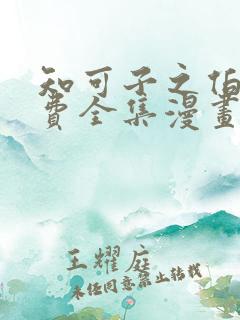 知可子之伯
費全集漫畫
王耀庭
未经同意禁止转载